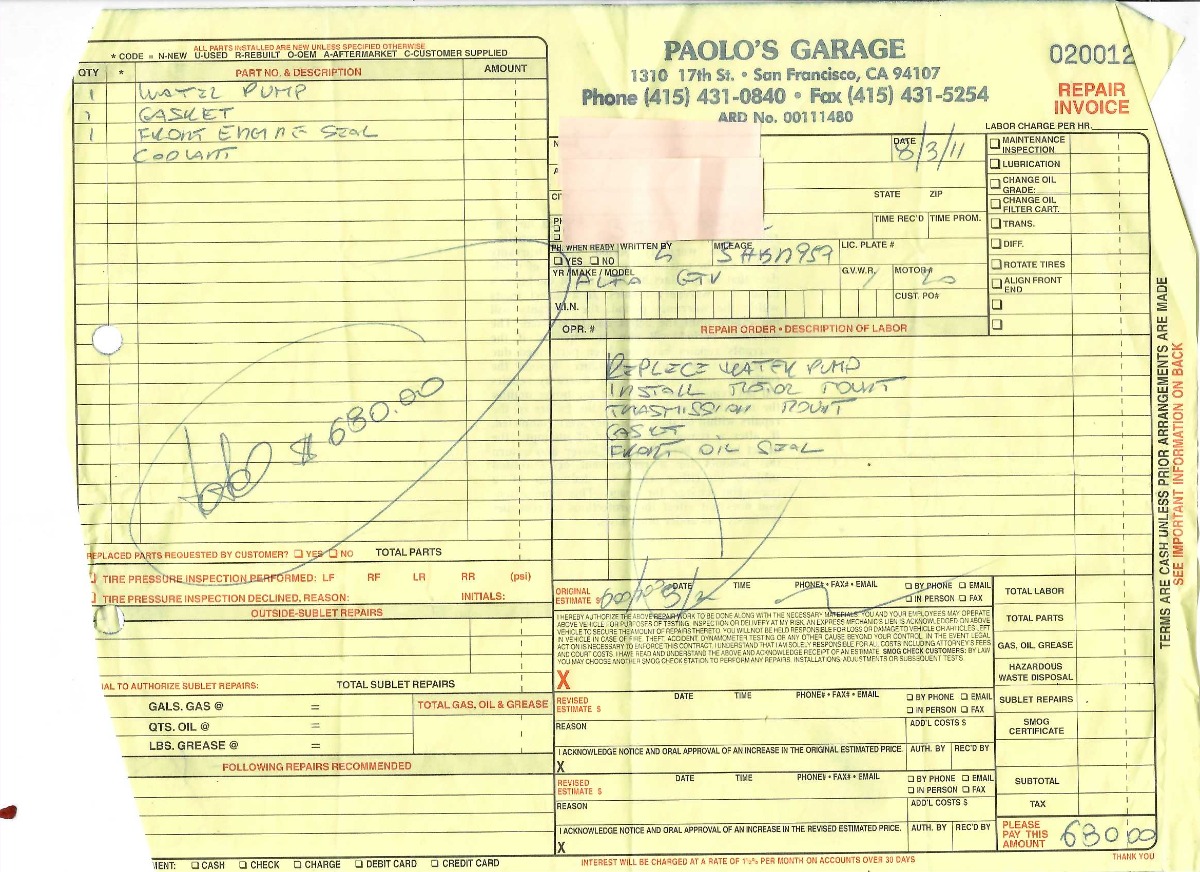 ALL PARTS INSTALLED ARE NEW UNLESS SPECIFIED OTHERWISE
* CODE = N-NEW U-USED R-REBUILT O-OEM A-AFTERMARKET C-CUSTOMER SUPPLIED
QTY * PART NO. & DESCRIPTION AMOUNT
1 WATER PUMP
1 GASKET
1 FRONT ENGINE SEAL
COOLANT
$ 680.00
REPLACED PARTS REQUESTED BY CUSTOMER? YES NO TOTAL PARTS
TIRE PRESSURE INSPECTION PERFORMED: LF RF LR RR (psi)
TIRE PRESSURE INSPECTION DECLINED, REASON: INITIALS:
OUTSIDE-SUBLET REPAIRS
TO AUTHORIZE SUBLET REPAIRS: TOTAL SUBLET REPAIRS
GALS. GAS @ = TOTAL GAS, OIL & GREASE
QTS. OIL @ =
LBS. GREASE @ =
FOLLOWING REPAIRS RECOMMENDED
CASH CHECK CHARGE DEBIT CARD CREDIT CARD
PAOLO'S GARAGE
1310 17th St. • San Francisco, CA 94107
Phone (415) 431-0840 • Fax (415) 431-5254
ARD No. 00111480
020012
REPAIR
INVOICE
LABOR CHARGE PER HR.
DATE
8/3/11
STATE ZIP
TIME REC'D TIME PROM.
PH. WHEN READY WRITTEN BY MILEAGE LIC. PLATE #
YES NO
YR/MAKE/MODEL G.V.W.R. MOTOR#
ALFA GTV
V.I.N. CUST. PO#
MAINTENANCE
INSPECTION
LUBRICATION
CHANGE OIL
GRADE:
CHANGE OIL
FILTER CART.
TRANS.
DIFF.
ROTATE TIRES
ALIGN FRONT
END
OPR. # REPAIR ORDER • DESCRIPTION OF LABOR
REPLECE WATER PUMP
INSTALL MOTOR MOUNT
TRASMISSION MOUNT
GASKET
FRONT OIL SEAL
ORIGINAL
ESTIMATE $ DATE TIME PHONE# • FAX# • EMAIL BY PHONE EMAIL
IN PERSON FAX
I HEREBY AUTHORIZE THE ABOVE REPAIR WORK TO BE DONE ALONG WITH THE NECESSARY MATERIALS. YOU AND YOUR EMPLOYEES MAY OPERATE
ABOVE VEHICLE FOR PURPOSES OF TESTING, INSPECTION OR DELIVERY AT MY RISK. AN EXPRESS MECHANIC'S LIEN IS ACKNOWLEDGED ON ABOVE
VEHICLE TO SECURE THE AMOUNT OF REPAIRS THERETO. YOU WILL NOT BE HELD RESPONSIBLE FOR LOSS OR DAMAGE TO VEHICLE OR ARTICLES LEFT
IN VEHICLE IN CASE OF FIRE, THEFT, ACCIDENT, DYNAMOMETER TESTING OR ANY OTHER CAUSE BEYOND YOUR CONTROL. IN THE EVENT LEGAL
ACTION IS NECESSARY TO ENFORCE THIS CONTRACT, I UNDERSTAND THAT I AM SOLELY RESPONSIBLE FOR ALL COSTS INCLUDING ATTORNEY'S FEES
AND COURT COSTS. I HAVE READ AND UNDERSTAND THE ABOVE AND ACKNOWLEDGE RECEIPT OF AN ESTIMATE. SMOG CHECK CUSTOMERS: BY LAW
YOU MAY CHOOSE ANOTHER SMOG CHECK STATION TO PERFORM ANY REPAIRS, INSTALLATIONS, ADJUSTMENTS OR SUBSEQUENT TESTS.
X
REVISED
ESTIMATE $ DATE TIME PHONE# • FAX# • EMAIL BY PHONE EMAIL
IN PERSON FAX
REASON ADD'L COSTS $
I ACKNOWLEDGE NOTICE AND ORAL APPROVAL OF AN INCREASE IN THE ORIGINAL ESTIMATED PRICE. AUTH. BY REC'D BY
X
REVISED
ESTIMATE $ DATE TIME PHONE# • FAX# • EMAIL BY PHONE EMAIL
IN PERSON FAX
REASON ADD'L COSTS $
I ACKNOWLEDGE NOTICE AND ORAL APPROVAL OF AN INCREASE IN THE REVISED ESTIMATED PRICE. AUTH. BY REC'D BY
X
TOTAL LABOR
TOTAL PARTS
GAS, OIL, GREASE
HAZARDOUS
WASTE DISPOSAL
SUBLET REPAIRS
SMOG
CERTIFICATE
SUBTOTAL
TAX
PLEASE
PAY THIS
AMOUNT 680 00
INTEREST WILL BE CHARGED AT A RATE OF 1½% PER MONTH ON ACCOUNTS OVER 30 DAYS
THANK YOU
TERMS ARE CASH UNLESS PRIOR ARRANGEMENTS ARE MADE
SEE IMPORTANT INFORMATION ON BACK